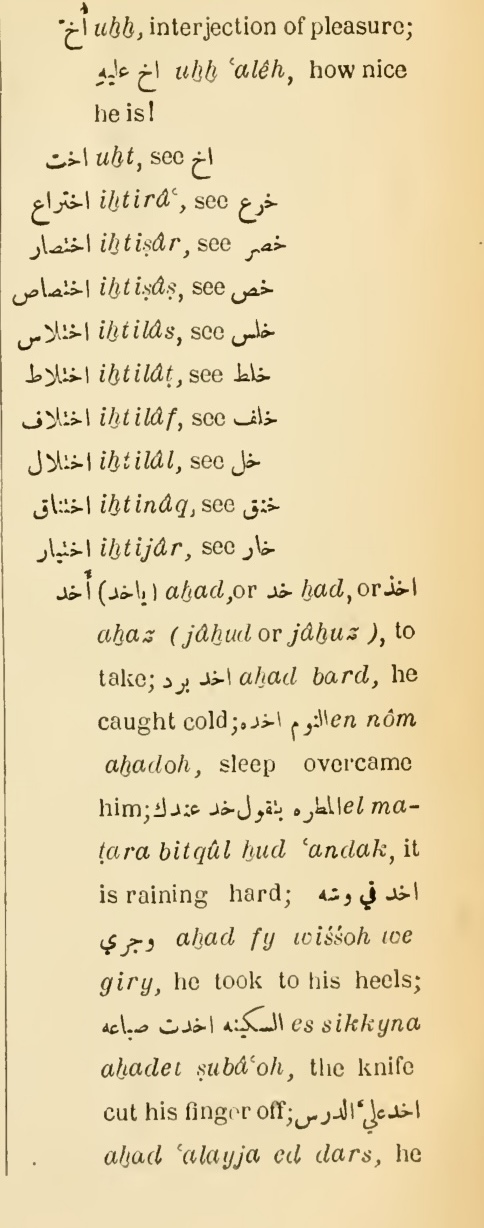 أُخ uḫḫ, interjection of pleasure;
اخ عليهِ uḫḫ ‘alêh, how nice
he is!
اخت uḫt, see اخ
اختراع iḫtirâ‘, see خرع
اختصار iḫtiṣâr, see خصر
اختصاص iḫtiṣâṣ, see خص
اختلاس iḫtilâs, see خلس
اختلاط iḫtilâṭ, see خلط
اختلاف iḫtilâf, see خلف
اختلال iḫtilâl, see خل
اختناق iḫtinâq, see خنق
اختيار iḫtijâr, see خار
أَخد (ياخد) aḫad, or خد ḫad, or اخذ
aḫaz (jâḫud or jâḫuz), to
take; اخد برد aḫad bard, he
caught cold; النوم اخده en nôm
aḫadoh, sleep overcame
him; المطره بتقول خد عندك el ma-
ṭara bitqûl ḫud ‘andak, it
is raining hard; اخد في وشه
وجري aḫad fy wiśśoh we
giry, he took to his heels;
السكينه اخدت صباعه es sikkyna
aḫadet ṣubâ‘oh, the knife
cut his finger off; اخد عليَّ الدرس
aḫad ‘alayja ed dars, he